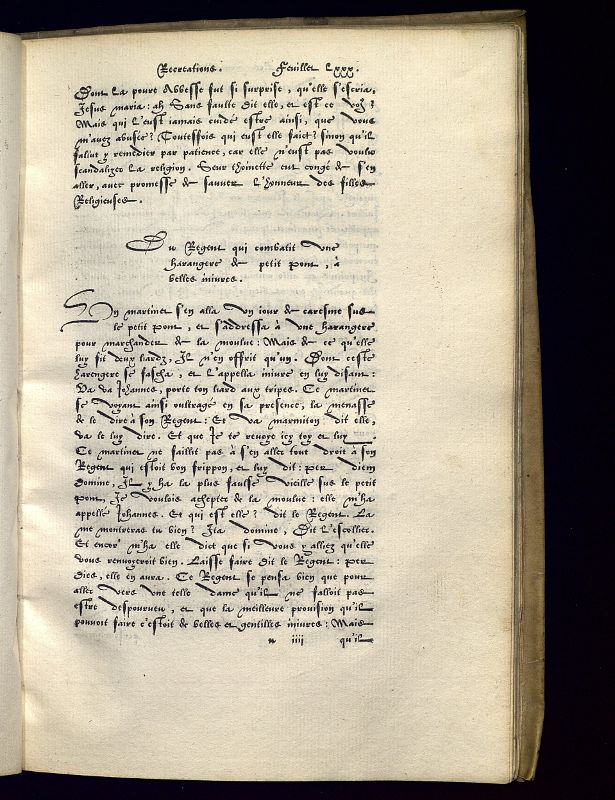 Recreations. Feuillet lxxx.
Dont la poure Abbesse fut si surprise, qu'elle s'escria,
Jesus maria: ah Sans faulte dit elle, et est ce vo9?
Mais qui l'eust iamais cuidé estre ainsi, que vous
m'auez abusée? Toutesfois qui eust elle faict? sinon qu'il
falut y remedier par patience, car elle n'eust pas voulu
scandalizer la religion. Seur thoinette eut congé de s'en
aller, auec promesse de sauuer l'honneur des filles
Religieuses.
Du Regent qui combatit vne
harangere de petit pont, à
belles iniures.
Un martinet s'en alla vn iour de caresme sus
le petit pont, et s'addressa à vne harangere
pour marchander de la moulue: Mais de ce qu'elle
luy fit deux liardz, Il n'en offrit qu'un. Dont ceste
harengere se fascha, et l'appella iniure en luy disant:
Va va Johannes, porte ton liard aux tripes. Ce martinet
se voyant ainsi oultragé en sa presence, la menasse
de le dire à son Regent: Et va marmiton dit elle,
va le luy dire. Et que Je te reuoye icy toy et luy.
Ce martinet ne faillit pas à s'en aller tout droit à son
Regent qui estoit bon frippon, et luy dit: per diem
domine, Il y ha la plus faulse vieille sus le petit
pont, Je voulois achepter de la moulue: elle m'ha
appellé Johannes. Et qui est elle? dit le Regent. La
me monstreras tu bien? Ita domine, Dit l'escollier.
Et encor' m'ha elle dict que si vous y alliez qu'elle
vous renuoyeroit bien. Laisse faire dit le Regent: per
dies, elle en aura. Ce Regent se pensa bien que pour
aller vers vne telle dame qu'il ne falloit pas
estre despourueu, et que la meilleure prouision qu'il
pouuoit faire c'estoit de belles et gentilles iniures: Mais
n iiii qu'il